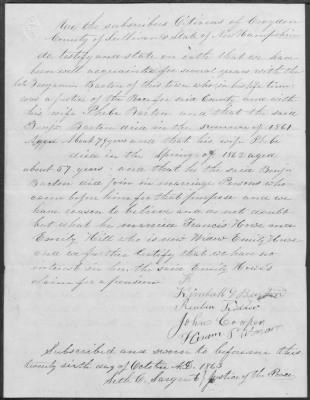 We the subscribers Citizens of Croydon
County of Sullivan & State of New Hampshire
do testify and state on oath that we have
been well acquainted for several years with the
late Benjamin Barton of this town who in his life time
was a Justice of the Peace for said County and with
his wife Phebe Barton and that the said
Benj. Barton died in the summer of 1861
Aged about 77 years and that his wife Phebe
died in the Spring of 1863 aged
about 57 years and that he the said Benj.
Barton did join in marriage Persons who
came before him for that purpose and we
have reason to believe and do not doubt
but what he married Francis Howe and
Emily Hill who is now Widow Emily Howe
and we further Certify that we have no
interest in her the said Emily Howe's
claim for a pension
Kimball
Reuben
John Cooper
Hiram
Subscribed and sworn to before me this
twenty sixth day of October A.D. 1863
Seth C. Sargent Justice of the Peace